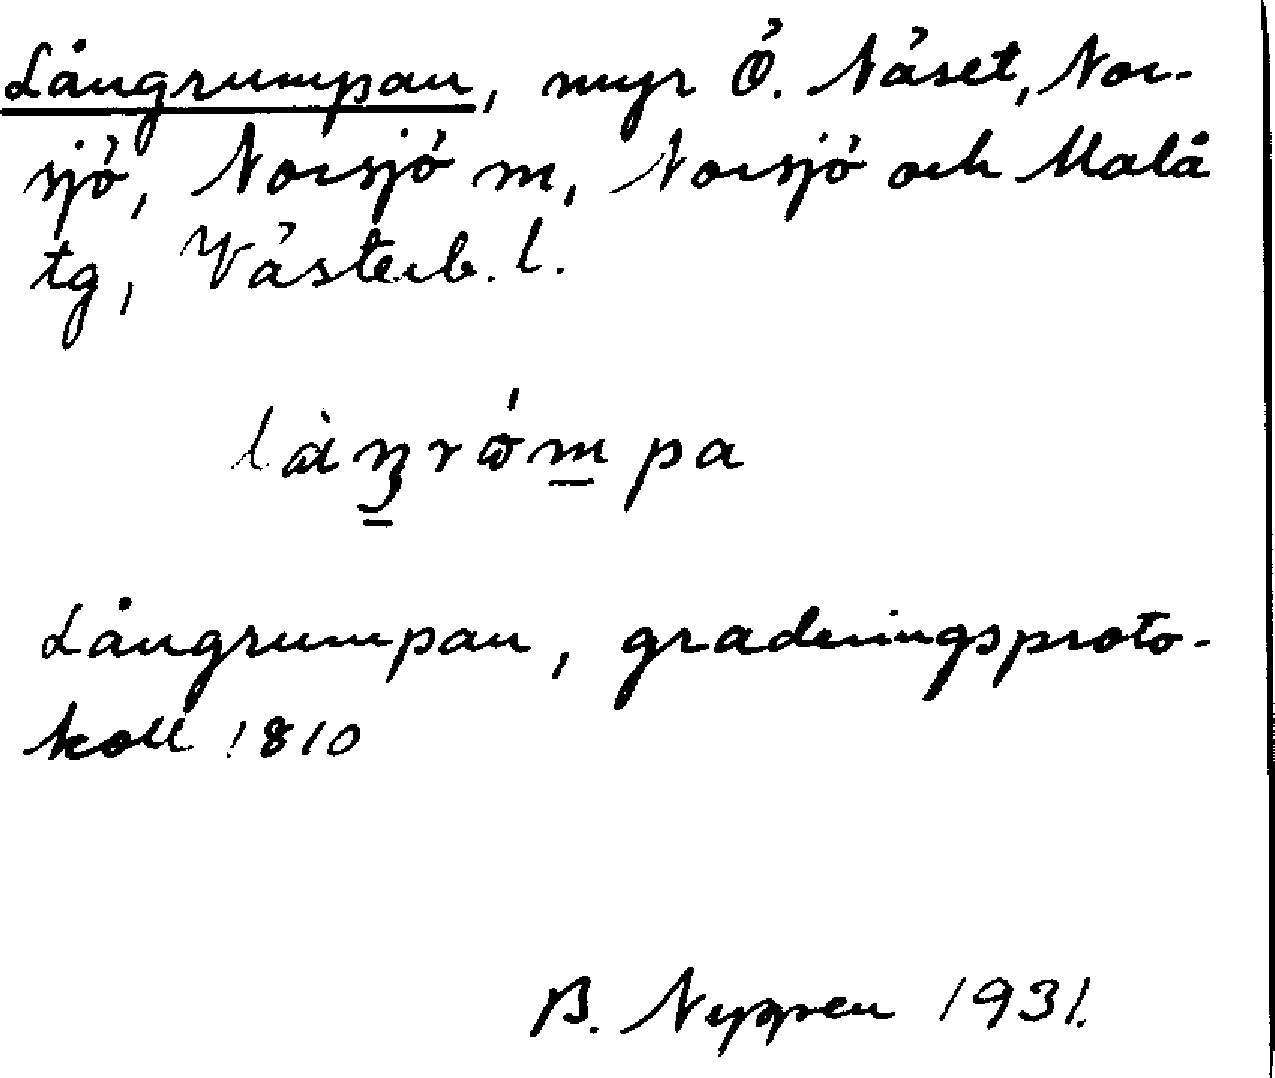 Långrumpan, myr Ö. Näset, Nor-
sjö, Norsjö m, Norsjö och Malå
tg, Västerb. l.
Långrumpan, graderingsproto-
koll 1810
B. Nygren 1931.